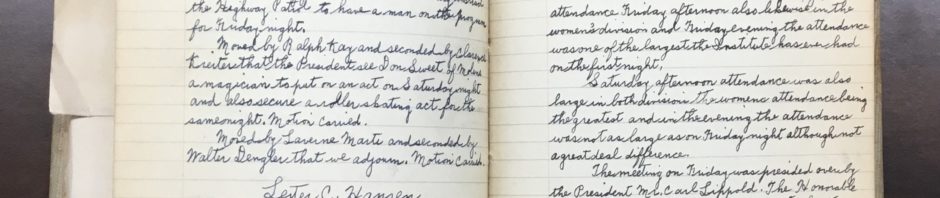 the Highway Patrol to have a man on the program
for Friday night.
Moved by Ralph Kay and seconded by Clarence
that the President see Don Sweet of
a magician to put on an act on Saturday night
and also secure a roller skating act for the
same night. Motion carried.
Moved by Laverne Marti and seconded by
Walter Dengler that we adjourn. Motion Carried.
Lester C. Hansen
attendance Friday afternoon also likewise in the
women's division and Friday evening the attendance
was one of the largest the Institute has ever had
on the first night.
Saturday afternoon attendance was also
large in both division the womens attendance being
the greatest and in the evening the attendance
was not as large as on Friday night although not
a great deal difference.
The meeting on Friday was presided over by
the President Mr. Carl Lippold. The Honorable